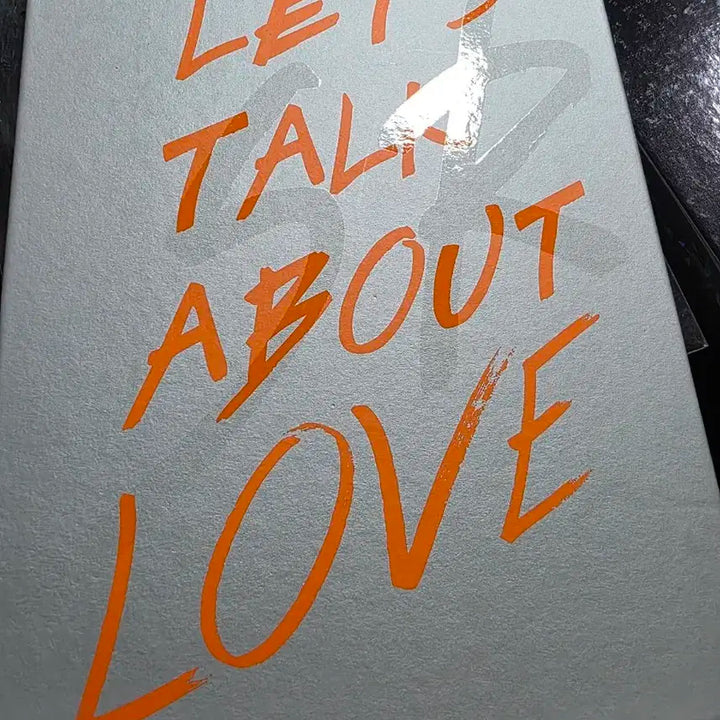 LET'S
TALK
ABOUT
LOVE